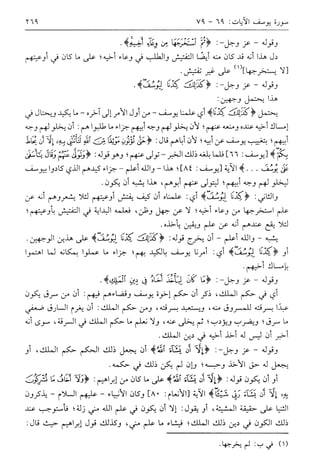 سورة يوسف الآيات: ٦٩ - ٧٩
٢٦٩
وقوله - عز وجل -: ﴿ثُمَّ اسْتَخْرَجَهَا مِن وِعَاءِ أَخِيهِ﴾.
دل هذا أنه قد كان منه أيضًا التفتيش والطلب في وعاء أخيه؛ على ما كان في أوعيتهم
[لا يستخرجها](١) على غير تفتيش.
وقوله - عز وجل -: ﴿كَذَلِكَ كِدْنَا لِيُوسُفَ﴾.
هذا يحتمل وجهين:
يحتمل ﴿كَذَلِكَ كِدْنَا لِيُوسُفَ﴾ أي علمنا يوسف - من أول الأمر إلى آخره - ما يكيد ويحتال في
إمساك أخيه عنده ومنعه عنهم؛ لأن يخلو لهم وجه أبيهم جزاء ما طلبوا هم: أن يخلو لهم وجه
أبيهم؛ بتغييب يوسف عن أبيه؛ لأن أباهم قال: ﴿حَتَّى تُؤْتُونِ مَوْثِقًا مِّنَ اللَّهِ لَتَأْتُنَّنِي بِهِ إِلَّا أَن يُحَاطَ
بِكُمْ﴾ [يوسف: ٦٦] فلما بلغه ذلك الخبر - تولى عنهم؛ وهو قوله: ﴿وَتَوَلَّى عَنْهُمْ وَقَالَ يَا أَسَفَى
عَلَى يُوسُفَ ...﴾ الآية [يوسف: ٨٤]؛ هذا - والله أعلم - جزاء كيدهم الذي كادوا بيوسف
ليخلو لهم وجه أبيهم؛ ليتولى عنهم أبوهم، هذا يشبه أن يكون.
والثاني: ﴿كَذَلِكَ كِدْنَا لِيُوسُفَ﴾ أي: علمناه أن كيف يفتش أوعيتهم لئلا يشعروهم أنه عن
علم استخرجها من وعاء أخيه؛ لا عن جهل وظن، فعلمه البداية في التفتيش بأوعيتهم؛
لئلا يقع عندهم أنه عن علم ويقين يأخذه.
يشبه - والله أعلم - أن يخرج قوله: ﴿كَذَلِكَ كِدْنَا لِيُوسُفَ﴾ على هذين الوجهين.
أو ﴿كَذَلِكَ كِدْنَا لِيُوسُفَ﴾ أي: أمرنا يوسف بالكيد بهم؛ جزاء ما عملوا بمكانه لما اهتموا
بإمساك أخيهم.
وقوله - عز وجل -: ﴿مَا كَانَ لِيَأْخُذَ أَخَاهُ فِي دِينِ الْمَلِكِ﴾.
أي في حكم الملك، ذكر أن حكم إخوة يوسف وقضاءهم فيهم: أن من سرق يكون
عبدًا بسرقته للمسروق منه، ويستعبد بسرقته، ومن حكم الملك: أن يغرم السارق ضعفي
ما سرق؛ ويضرب ويؤدب؛ ثم يخلى عنه، ولا نعلم ما حكم الملك في السرقة، سوى أنه
أخبر أن ليس له أخذ أخيه في دين الملك.
وقوله - عز وجل -: ﴿إِلَّا أَن يَشَاءَ اللَّهُ﴾ أن يجعل ذلك الحكم حكم الملك، أو
يجعل له حق الأخذ وحبسه؛ وإن لم يكن ذلك في حكمه.
أو أن يكون قوله: ﴿إِلَّا أَن يَشَاءَ اللَّهُ﴾ على ما كان من إبراهيم: ﴿وَلَا أَخَافُ مَا تُشْرِكُونَ
بِهِ إِلَّا أَن يَشَاءَ رَبِّي شَيْئًا﴾ الآية [الأنعام: ٨٠] وكان الأنبياء - عليهم السلام - يذكرون
الثنيا على حقيقة المشيئة، أو يقول: إلا أن يكون في علم الله مني زلة؛ فأستوجب عند
ذلك الكون في دين ذلك الملك؛ فيشاء ما علم مني، وكذلك قول إبراهيم حيث قال:
(١) في ب: لم يخرجها.